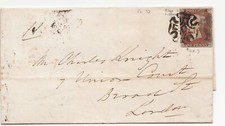 Mr. Charles Knight
7 Union Court
Broad St
London